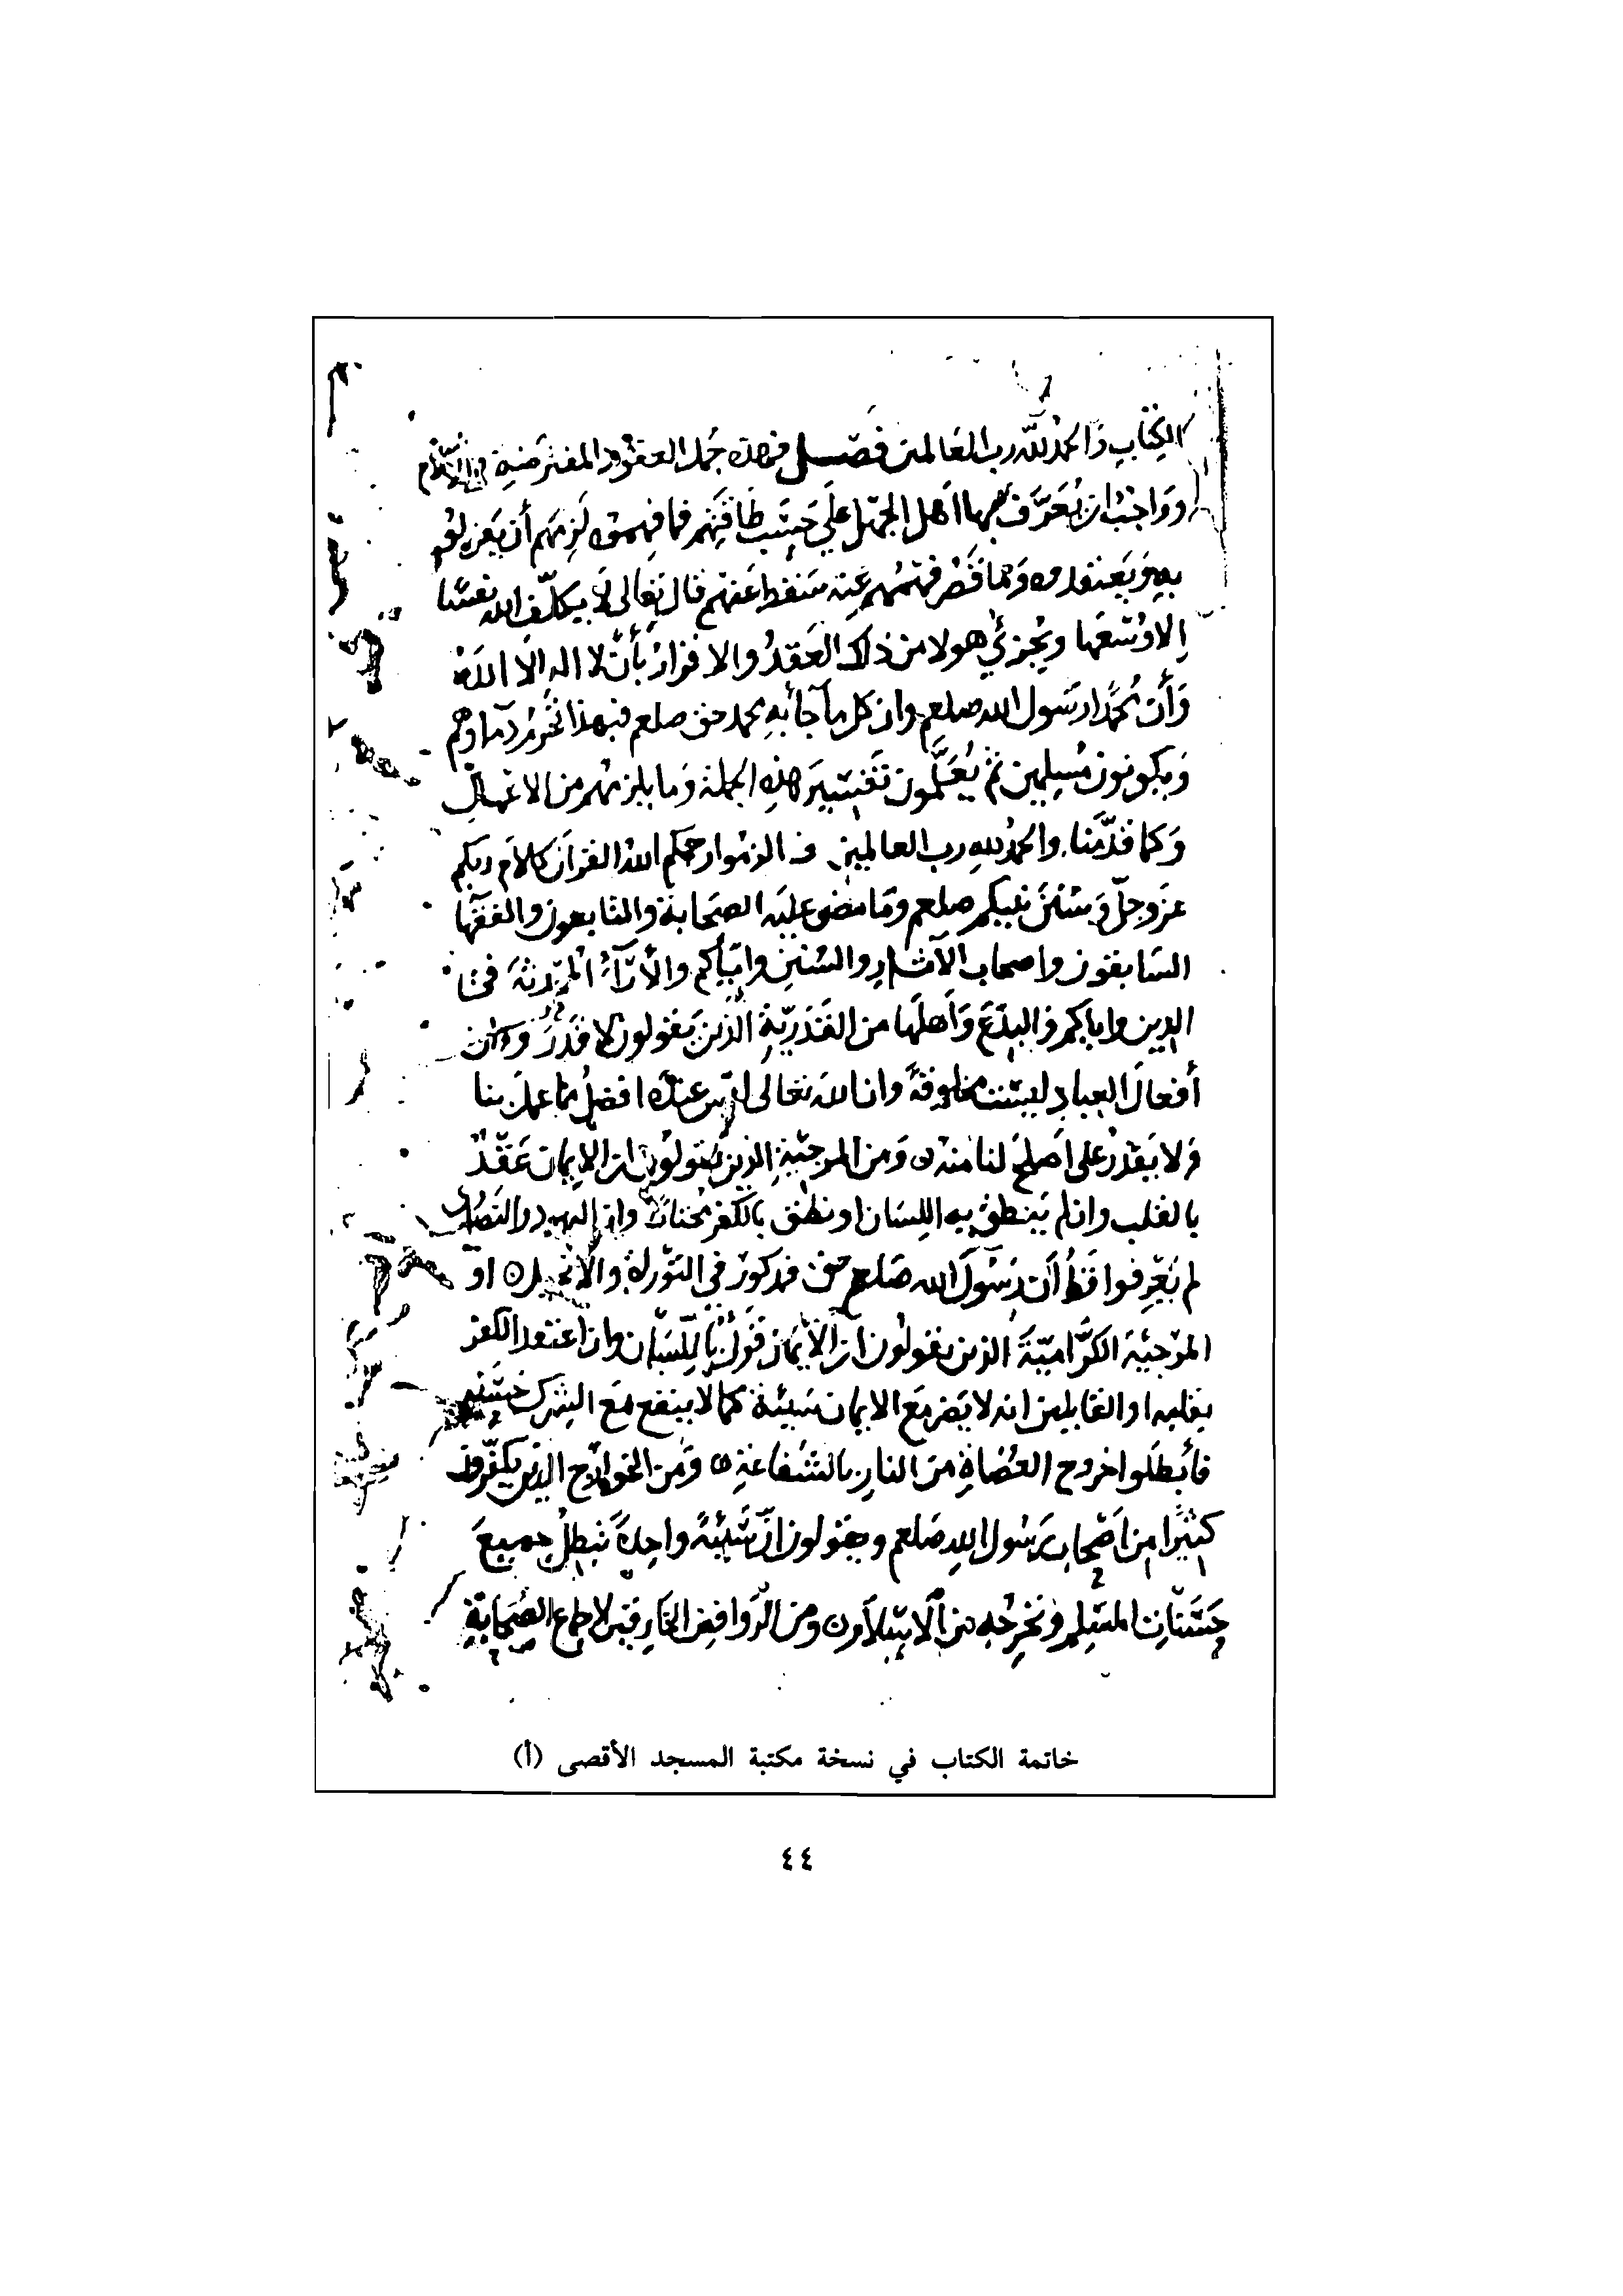 الكتاب والحمد لله رب العالمين فصل فهذه جمل العقود المفترضة في الاسلام
وواجب ان يعرف بها اهل الجهل على حسب طاقتهم فما فهموه لزمهم أن يقولوا
به ويعتقدوه وما قصر فهمهم عنه سقط عنهم قال تعالى لا يكلف الله نفسًا
الا وسعها ويجزئ هولا من ذلك العقد والاقرار بأن لا اله الا الله
وأن محمدًا رسول الله صلعم وان كل ما جأ به محمد حق صلعم فبهذا تحرم دمآوهم
ويكونون مسلمين ثم يعلمون تفسير هذه الجملة وما يلزمهم من الاعمال
وكما قدّمنا والحمد لله رب العالمين الزموا رحمكم الله القران كلام ربكم
عز وجل وسنن نبيكم صلعم وما مضى عليه الصحابة والتابعون والفقها
السابقون واصحاب الآثار والسنن وايأكم والأرآء المحدثة في
الدين واياكم والبدع وأهلها من القدرية الذين يقولون لا قدر وان
أفعال العباد ليست مخلوقة وان الله تعالى ليس عنده افضل مما عمل بنا
ولا يقدر على اصلح لنا منه ٥ ومن المرجية الذين يقولون ان الايمان عقد
بالقلب وان لم ينطق به اللسان او نطق بالكفر وان اليهود والنصارى
لم يعرفوا قط أن رسول الله صلعم حق مذكور في التوراة والانجيل ٥ او
المرجية الكرّامية الذين يقولون ان الأيمان قول باللسان وان اعتقد الكفر
بقلبه او القايلين انه لا يضر مع الايمان سيئة كما لا ينفع مع الشرك حسنة
فأبطلوا خروج العصاة من النار بالشفاعة ٥ ومن الخوارج الذين يكفّرون
كثيرًا من اصحاب رسول الله صلعم ويقولون ان سيئة واحدة تبطل جميع
حسنات المسلم وتخرجه من الاسلام ٥ ومن الروافض الخارقين لاجماع الصحابة
خاتمة الكتاب في نسخة مكتبة المسجد الأقصى (أ)
٤٤